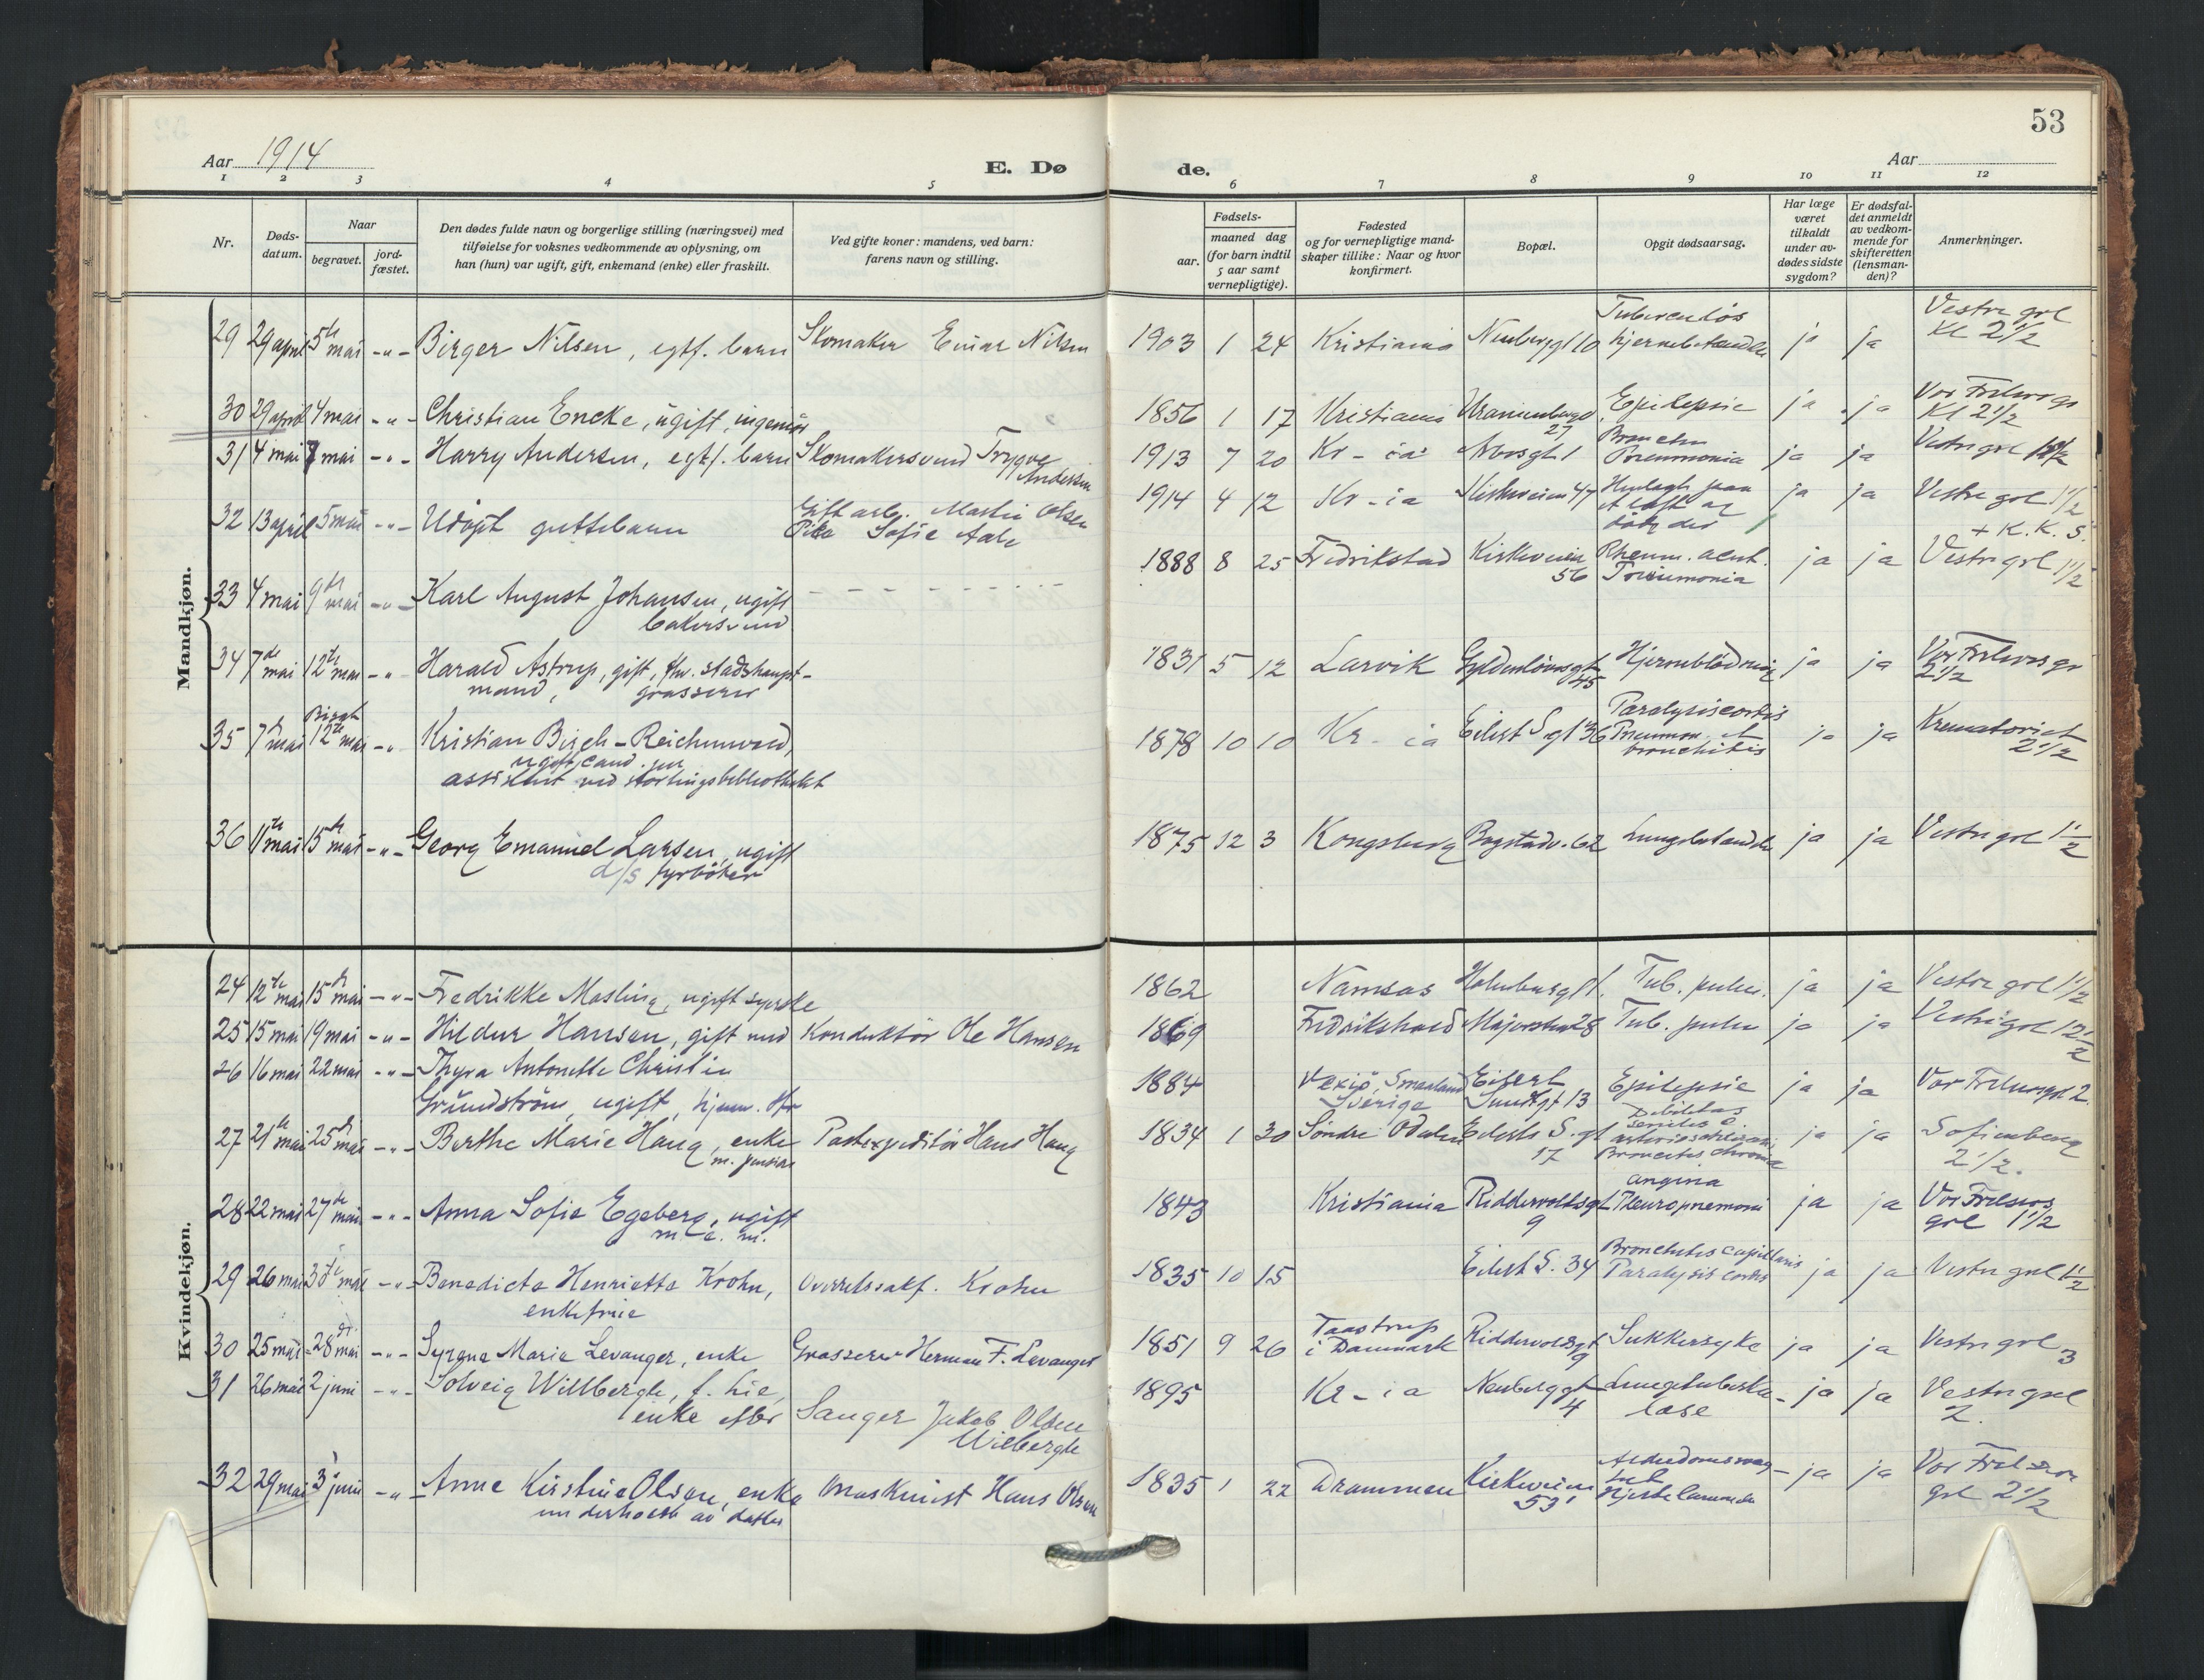 53
Aar 1914
E. Dø
de.
Aar
1 2 3 4 5 6 7 8 9 10 11 12
Nr.
Døds-
datum.
Naar
begravet.
jord-
fæstet.
Den dødes fulde navn og borgerlige stilling (næringsvei) med
tilføielse for voksnes vedkommende av oplysning, om
han (hun) var ugift, gift, enkemand (enke) eller fraskilt.
Ved gifte koner: mandens, ved barn:
farens navn og stilling.
Fødsels-
aar.
maaned dag
(for barn indtil
5 aar samt
vernepligtige).
Fødested
og for vernepligtige mand-
skaper tillike: Naar og hvor
konfirmert.
Bopæl.
Opgit dødsaarsag.
Har læge
været
tilkaldt
under av-
dødes sidste
sygdom?
Er dødsfal-
det anmeldt
av vedkom-
mende for
skifteretten
(lensman-
den)?
Anmerkninger.
Mandkjøn.
29 29 april 5te mai -"- Birger Nilsen, egtf. barn Skomaker Einar Nilsen 1903 1 24 Kristiania Neuberggt 10 Tuberculøs ja ja Vestre grl
Kl 2 1/2
30 29 april 4 mai -"- Christian Encke, ugift, ingeniør 1856 1 17 Kristiania Uranienborgv 27 Epilepsie ja ja Vor Frelsers gr
Kl 2 1/2
31 4 mai 7 mai -"- Harry Andersen, egtf. barn Skomakersvend Trygve
Andersen
1913 7 20 Kr-ia Broncho
Pneumonia ja ja Vestre grl
32 13 april 5 mai -"- Udøpt guttebarn Gift arb. Martin Olsen
Pike Sofie
1914 4 12 Kr-ia Kirkeveien 47 ja ja Vestre grl 1 1/2
+ K. K. S.
33 4 mai 9de mai -"- Karl August Johansen, ugift
bakersvend
1888 8 25 Fredrikstad Kirkeveien
56 Rheum. acut.
Pneumonia ja ja Vestre grl 1 1/2
34 7de mai 12te mai -"- Harald Astrup, gift, fhv. stadshaupt-
mand, grosserer
1831 5 12 Larvik Gyldenløvesgt
45 Hjerneblødning ja ja Vor Frelsers gr
2 1/2
35 7de mai 12te mai -"- Kristian Birch-Reichenwald,
ugift, cand. jur
assistent ved stortingsbibliotheket
1878 10 10 Kr-ia Eilert S. gt 36 Paralysis cordis
Pneumon. et
bronchitis ja ja Krematoriet
2 1/2
36 11te mai 15de mai -"- Georg Emanuel Larsen, ugift
d/s fyrbøter
1875 12 3 Kongsberg Bogstadv. 62 Lungebetændelse ja ja Vestre grl 1 1/2
Kvindekjøn.
24 12te mai 15de mai -"- Fredrikke Mosling, ugift syerske 1862 Namsos Holmboesgt 1. Tub. pulm. ja ja Vestre grl 1 1/2
25 15 mai 19 mai -"- Hildur Hansen, gift med Konduktør Ole Hansen 1869 Fredrikshald Majorstuv 28 Tub. pulm ja ja Vestre grl
26 16 mai 22 mai -"- Thyra Antonette Christine
Grundström, ugift, hjem.
1884 Vexiö, Smaaland
Sverige Eilert
Sundtgt 13 Epilepsie ja ja Vor Frelsersgrl 2.
27 21de mai 25de mai -"- Berthe Marie Haug, enke
m. pension Postexpeditør Hans Haug
1834 1 30 Søndre Odalen Eilerts S. gt
17 Debilitas
senilis c.
arteriosclerosi
Bronchitis chronica ja ja Sofienberg
2 1/2.
28 22 mai 27de mai -"- Anna Sofie Egeberg, ugift
1843 Kristiania Riddervoldsgt
9 angina
Pleuropnemoni ja ja Vor Frelsers
grl 1 1/2
29 26 mai 30te mai -"- Benedicte Henriette Krohn,
enkefrue Overretssakf. Krohn
1835 10 15 Eilert S. 34 Bronchitis capillaris
Paralysis cordis ja ja Vestre grl 1 1/2
30 25 mai 28de mai -"- Syrene Marie Levanger, enke Grosserer Herman F. Levanger
1851 9 26 Taastrup
i Danmark Riddervoldsgt
9 Sukkersyke ja ja Vestre grl 3
31 26 mai 2 juni -"- Solveig Willbergh, f. Lie,
enke efter Sanger Jakob Olsen
Wilbergh
1895 Kr-ia Neuberggt
4 Lungetuberku-
lose ja ja Vestre grl
2.
32 29 mai 3 juni -"- Anne Kirstine Olsen, enke
underholdt av datter Maskinist Hans Olsen
1835 1 22 Drammen Kirkeveien
53 Alderdomssvag-
het ja ja Vor Frelsers
grl 2 1/2